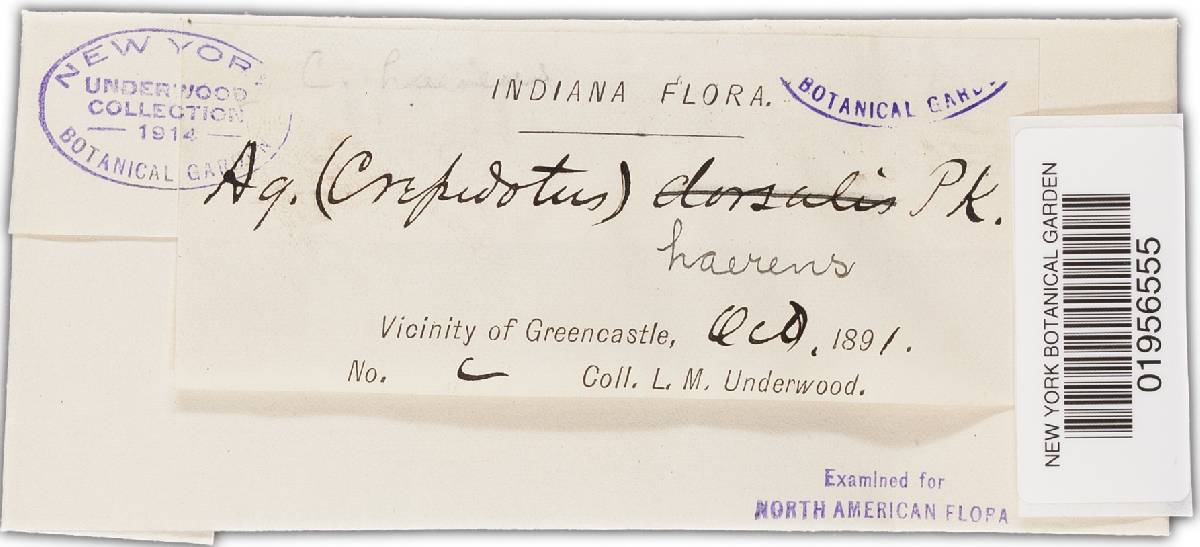 NEW YORK
UNDERWOOD
COLLECTION
1914
BOTANICAL GARDEN
C. haerens
INDIANA FLORA.
BOTANICAL GARDE
Ag. (Crepidotus) dorsalis Pk.
haerens
Vicinity of Greencastle, Oct, 1891.
No.
Coll. L. M. Underwood.
Examined for
NORTH AMERICAN FLORA
NEW YORK BOTANICAL GARDEN
01956555